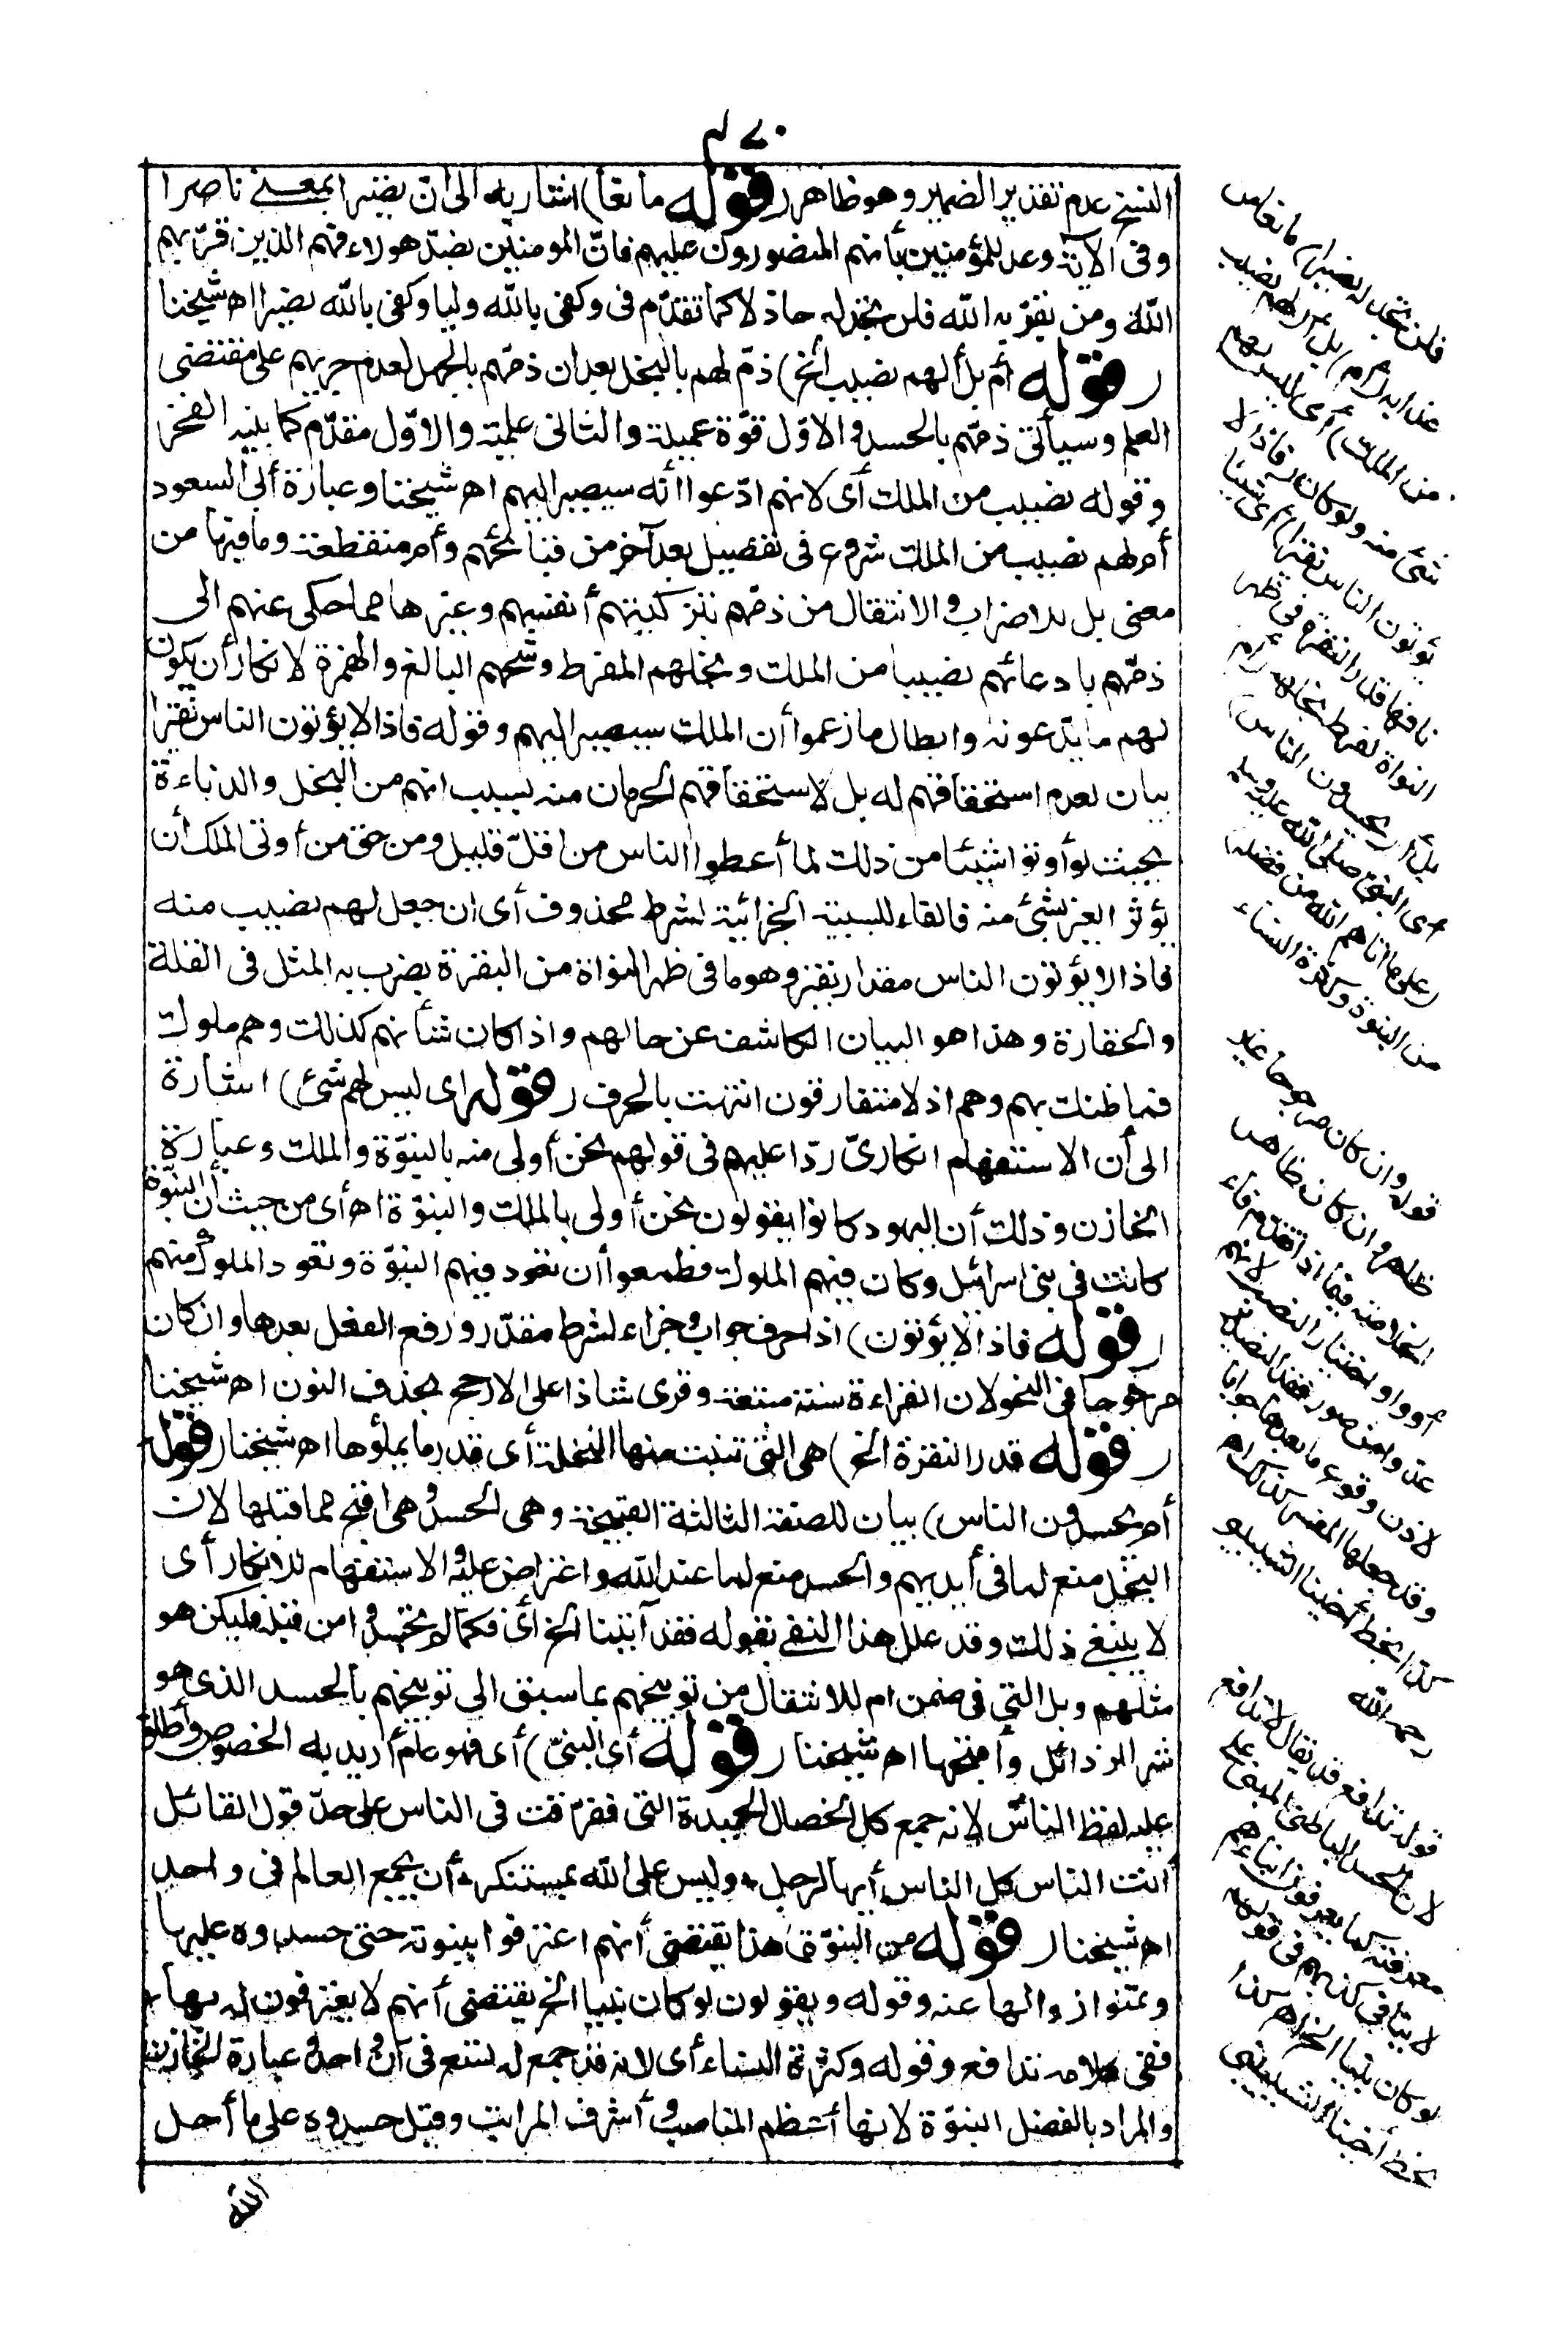 النسخ عدم تقدير الضمير وهو ظاهر (قوله مانعا) اشار به الى ان نصيرا بمعنى ناصرا
وفى الآية وعد للمؤمنين بأنهم المنصورون عليهم فانّ المومنين بضدّ هولاء فهم الذين قرّبهم
الله ومن يقرّبه الله فلن تجد له خاذلا كما تقدّم فى وكفى بالله وليا وكفى بالله نصيرا اه شيخنا
(قوله أم بل ألهم نصيب الخ) ذمّ لهم بالبخل بعد ان ذمّهم بالجهل لعدم جريهم على مقتضى
العلم وسيأتى ذمّهم بالحسد والاوّل قوّة عملية والثانى علمية والاوّل مقدّم كما بينه الفخر
وقوله نصيب من الملك أى لانهم ادّعوا أنه سيصير اليهم اه شيخنا وعبارة أبى السعود
أم لهم نصيب من الملك شروع فى تفصيل بعد آخر من قبائحهم وأم منقطعة وما فيها من
معنى بل للاضراب والانتقال من ذمّهم بتزكيتهم أنفسهم وغيرها مما حكى عنهم الى
ذمّهم بادعائهم نصيبا من الملك وبخلهم المفرط وشحهم البالغ والهمزة لانكار أن يكون
لهم ما يدّعونه وابطال ما زعموا أن الملك سيصير اليهم وقوله فاذا لا يؤتون الناس نقيرا
بيان لعدم استحقاقهم له بل لاستحقاقهم الحرمان منه بسبب انهم من البخل والدناءة
بحيث لو أوتوا شيئا من ذلك لما أعطوا الناس من اقلّ قليل ومن حق من أوتى الملك أن
يؤثر الغير بشئ منه فالفاء للسببية الجزائية لشرط محذوف أى ان جعل لهم نصيب منه
فاذا لا يؤتون الناس مقدار نقير وهو ما فى ظهر النواة من النقرة يضرب به المثل فى القلة
والحقارة وهذا هو البيان الكاشف عن حالهم واذا كان شأنهم كذلك وهم ملوك
فما ظنك بهم وهم اذلا متفارقون انتهت بالحرف (قوله اى ليس لهم شئ) اشارة
الى أن الاستفهام انكارىّ ردّا عليهم فى قولهم نحن أولى منه بالنبوّة والملك وعبارة
الخازن وذلك أن اليهود كانوا يقولون نحن أولى بالملك والنبوّة اه أى من حيث أن النبوّة
كانت فى بنى اسرائيل وكان فيهم الملوك فطمعوا أن تعود فيهم النبوّة وتعود الملوك منهم
(قوله فاذا لا يؤتون) اذا حرف جواب وجزاء لشرط مقدّر ورفع الفعل بعدها وان كان
مرجوحا فى النحو لان القراءة سنة متبعة وقرى شاذا على الارجح بحذف النون اه شيخنا
(قوله قدر النقرة الخ) هى التى تنبت منها النخلة أى قدر ما يملؤها اه شيخنا (قوله
أم يحسدون الناس) بيان للصفة الثالثة القبيحة وهى الحسد وهى اقبح مما قبلها لان
البخل منع لما فى أيديهم والحسد منع لما عند الله واعتراض عليه والاستفهام للانكار أى
لا ينبغى ذلك وقد علل هذا النفى بقوله فقد آتينا الخ أى فكما لم تحسدوا من قبله فليكن هو
مثلهم وبل التى فى ضمن ام للانتقال من توبيخهم بما سبق الى توبيخهم بالحسد الذى هو
شر الرذائل وأقبحها اه شيخنا (قوله أى النبىّ) أى فهو عام أريد به الخصوص وأطلق
عليه لفظ الناس لانه جمع كل الخصال الحميدة التى تفرّقت فى الناس على حدّ قول القائل
أنت الناس كل الناس أيها الرجل * وليس على الله بمستنكر * أن يجمع العالم فى واحد
اه شيخنا (قوله من النبوّة) هذا يقتضى أنهم اعترفوا بنبوته حتى حسدوه عليها
وتمنوا زوالها عنه وقوله ويقولون لو كان نبيا الخ يقتضى أنهم لا يعترفون له بها
ففى كلامه تدافع وقوله وكثرة النساء أى لانه قد جمع له تسع فى آن واحد وعبارة الخازن
والمراد بالفضل النبوّة لانها أعظم المناصب وأشرف المراتب وقيل حسدوه على ما أحل
الله
فلن تجد له نصيرا) مانعا من
عذابه (أم) بل أ (لهم نصيب
من الملك) أى ليس لهم
شئ منه ولو كان (فاذا لا
يؤتون الناس نقيرا) أى شيئا
تافها قدر النقرة فى ظهر
النواة لفرط بخلهم (أم)
بل أ (يحسدون الناس)
أى النبى صلى الله عليه وسلم
(على ما آتاهم الله من فضله)
من النبوة وكثرة النساء
قوله وان كان مرجوحا غير
ظاهر وان كان ظاهر
الخلاصة فيما اذا تقدم فاء
أو واو اختيار النصب لانهم
لاذن وقوع ما بعدها جوابا
قوله تدافع قد يقال لا تدافع
لان الحسد الباطنى
معرفته كما يعرفون أبناءهم
لا ينافى كذبهم فى قولهم
لو كان نبيا الخ اه كذا
بخط أخينا الشبينى